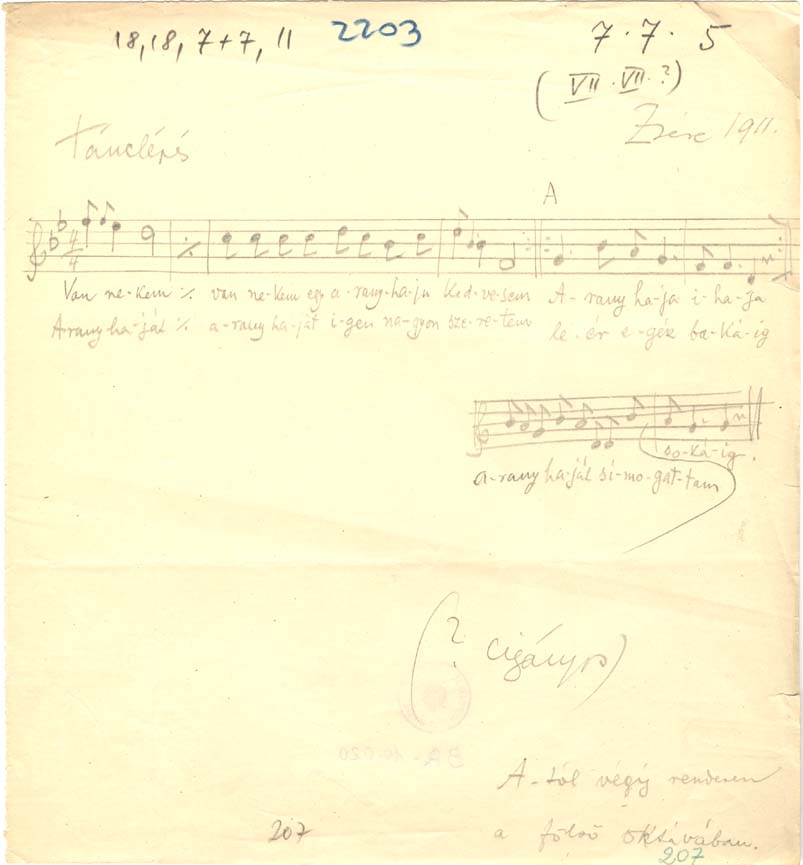 18, 18, 7+7, 11 2203 7 · 7 · 5
(VII · VII · ?)
Zsére 1911.
Tánclépés
A
4/4
Van ne-kem ٪ van ne-kem egy a-rany-ha-ju ked-ve-sem A-rany ha-ja i-ha-ja
Arany ha-ját ٪ a-rany ha-ját i-gen na-gyon sze-re-tem le-ér e-gész bo-ká-ig
so-ká-ig.
a-rany ha-ját si-mo-gat-tam
(? cigányos)
A-tól végig rendesen
a fölső oktávában.
207 207